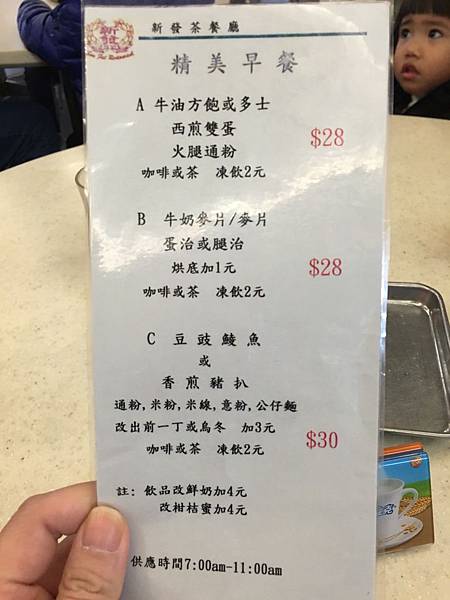 新發茶餐廳
精美早餐
A 牛油方飽或多士
西煎雙蛋
火腿通粉
$28
咖啡或茶 凍飲2元
B 牛奶麥片/麥片
蛋治或腿治
烘底加1元
$28
咖啡或茶 凍飲2元
C 豆豉鯪魚
或
香煎豬扒
通粉,米粉,米線,意粉,公仔麵
改出前一丁或烏冬 加3元
$30
咖啡或茶 凍飲2元
註: 飲品改鮮奶加4元
改柑桔蜜加4元
供應時間7:00am-11:00am